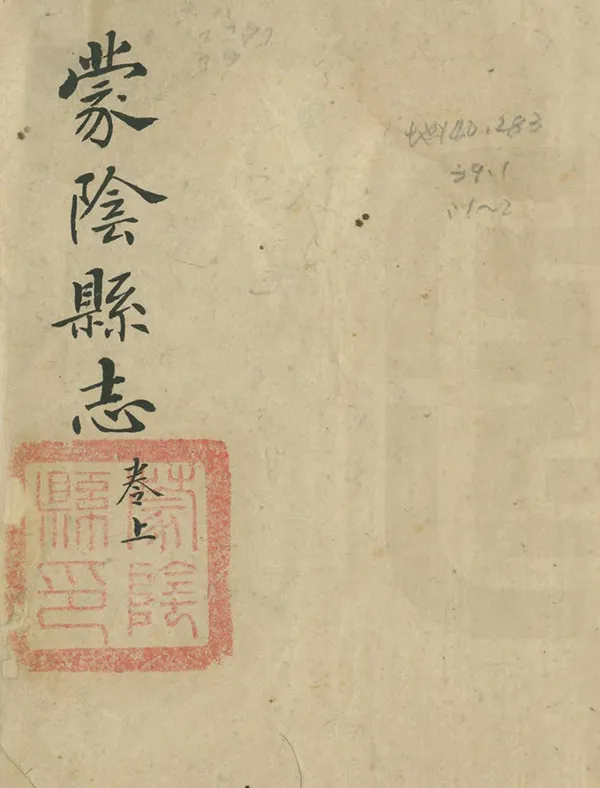 蒙陰縣志
卷上
蒙陰
縣印
地140.283
39.1
:1~2